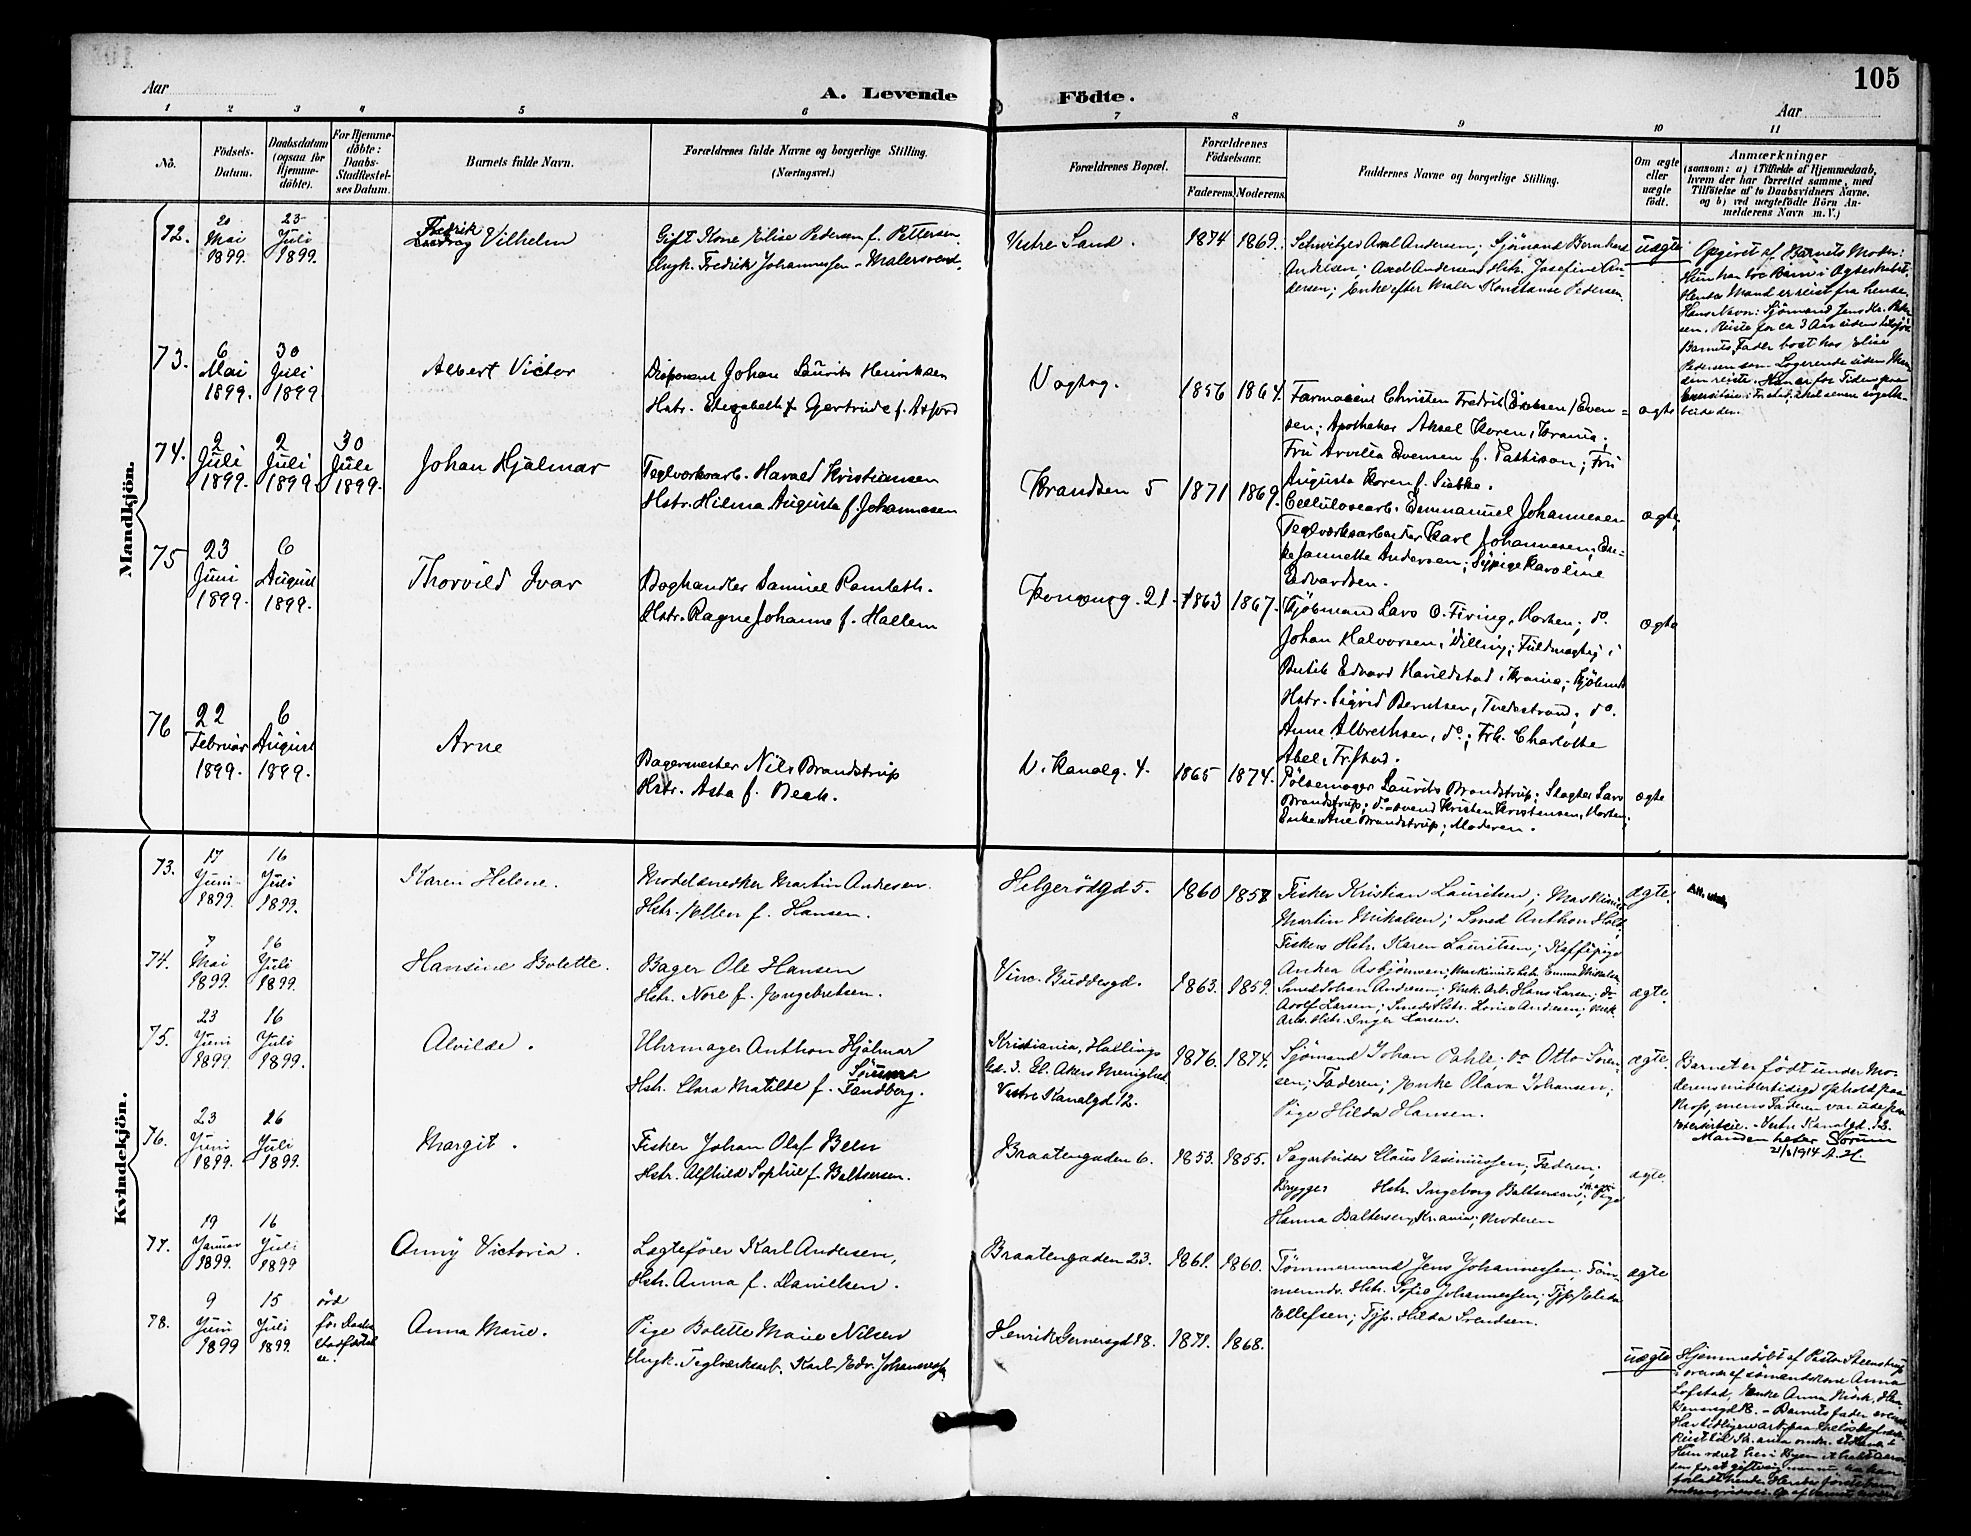 105
Aar
A. Levende Födte.
Aar
1 2 3 4 5 6 7 8 9 10 11
No.
Födsels-Datum.
Daabsdatum (ogsaa for Hjemme-döbte).
For Hjemme-döbte: Daabs-Stadfæstel-ses Datum.
Barnets fulde Navn.
Forældrenes fulde Navne og borgerlige Stilling.
(Næringsvei.)
Forældrenes Bopæl.
Forældrenes Födselsaar.
Faderens. Moderens.
Faddernes Navne og borgerlige Stilling.
Om ægte eller uægte födt.
Anmærkninger
(saasom: a) i Tilfælde af Hjemmedaab, hvem der har forrettet samme, med Tilföielse af to Daabsvidners Navne, og b) ved uægtefödte Börn An-melderens Navn m. V.)
Mandkjön.
72. 20 Mai 1899. 23 Juli 1899.
Fredrik Vilhelm
Gift Kone Elise Pedersen f. Pettersen
Ungk. Fredrik Johannessen - Malersvend.
Vestre Sand. 1874 1869.
Axel Andersen; Sjömand Bernhard
Andersen; Axel Andersens Hstr. Josefine An-
dersen; Enke efter Maler Konstanse Pedersen.
uægte
Opgivet af Barnets Moder:
Hun har to Barn i Ægteskabet.
Hendes Mand er reist fra hende.
Hans Navn: Sjömand Jens Kr. Peder-
sen. Reiste for ca 3 Aar siden tilsjös.
Barnets Fader boet hos Elise
Pedersen som Logerende siden Man-
den reiste.
73. 6 Mai 1899. 30 Juli 1899
Albert Victor
Disponent Johan Laurits Henriksen
Hstr. Elisabeth Gjertrude f. Axfjord
Vogtsg. 1856 1864.
Farmaceut Christen Fredrik (Eriksen) Even-
sen; Apotheker Aksel Koren, Krania;
Fru Arvilla Evensen f. Pattison; Fru
Augusta Koren f. Siebke.
ægte
74. 2 Juli 1899. 2 Juli 1899. 30 Juli 1899.
Johan Hjalmar
Teglverksarb. Harald Kristiansen
Hstr. Hilma Augusta f. Johannesen
Krandsen 5 1871 1869.
Cellulosearb. Emmanuel Johannesen
Teglverksarbeider Karl Johannesen; En-
ke Jannette Andersen; Sypige Karoline
Edvardsen.
ægte
75 23 Juni 1899. 6 August 1899.
Thorvild Ivar
Boghandler Samuel Ramseth.
Hstr. Ragna Johanne f. Hallem
Kongensg. 21. 1863 1867.
Kjöbmand Lars O. Firing, Horten; do.
Johan Halvorsen, Dilling; Fuldmægtig i
Butik Edvard Harildstad, Krania; Kjöbmd.
Hstr. Sigrid Berntsen, Tvedestrand; do.
Anne Albrethsen, do; Frk. Charlotte
Abel, Fr.stad.
ægte
76 22 Februar 1899. 6 August 1899.
Arne
Bagermester Nils Brandstrup
Hstr. Asta f. Bech.
N. Kanalg. 4. 1865 1874.
Pölsemager Laurits Brandstrup; Slagter Lars
Brandstrup; do svend Kristen Kristensen, Horten;
Enke Ane Brandstrup; Moderen.
ægte
Kvindekjön.
73. 17 Juni 1899. 16 Juli 1899.
Karen Helene.
Modelsnedker Martin Andresen.
Hstr. Ellen f. Hansen.
Helgerödgd 5. 1860 1858
Fisker Kristian Lauritsen; Maskinist
Martin Mikalsen; Smed Anthon Holt;
Fiskers Hstr. Karen Lauritsen; Kaffepige
Andrea Asbjörnsen; Maskinists Hstr. Emma Mikalsen
ægte.
Att. utst.
74. 7 Mai 1899. 16 Juli 1899.
Hansine Bolette.
Bager Ole Hansen
Hstr. Nore f. Engebretsen.
Vinc. Buddesgd. 1863. 1859.
Smed Johan Andresen; Mek. Arb. Hans Larsen; do
Adolf Larsen; Smeds Hstr. Lovise Andresen; Mek.
Arb. Hstr. Inger Larsen.
ægte.
75. 23 Juni 1899. 16 Juli 1899.
Alvilde.
Uhrmager Anthon Hjalmar
Sörum
Hstr. Clara Matilde f. Sandberg.
Kristiania, Hallings
Gd. 3. Gl. Akers Menighed.
Vestre Kanalgd 12.
1876. 1874.
Sjömand Johan Pahle; do Otto Sören-
sen; Faderen; Enke Olava Johansen;
Pige Hilda Hansen.
ægte.
Barnet er födt under Mo-
derens midlertidige ophold paa
Moss, mens Faderen var ude paa
reise. Vestre Kanalgd. 12.
Manden heter Sörum
21/8 1914 A.H
76. 23 Juni 1899. 26 Juli 1899.
Margit.
Fisker Johan Olaf Been
Hstr. Alfhild Sophie f. Baltsersen.
Braatengaden 6. 1853. 1855.
Sagarbeider Claus Rasmussen; Faderen;
Brygger Hstr. Ingeborg Baltsersen; Pige
Hanna Baltersen, Kr.ania; Moderen
ægte.
77. 19 Januar 1899. 16 Juli 1899
Anny Victoria.
Lægtefører Karl Andersen,
Hstr. Anna f. Danielsen.
Braatengaden 23. 1861. 1860.
Tömmermand Jens Johannessen; Töm-
mermds. Hstr. Sofie Johannessen; Tjp. Elida
Ellefsen; Tjp. Hilda Svendsen.
ægte
78. 9 Juni 1899 15 Juli 1899.
död
för Daabs
stadfæstel
se.
Anna Marie.
Pige Bolette Marie Nilsen
Ungk. Teglværksarb. Karl Edv. Johannessen
Henrik Gernersgd 18. 1871. 1868.
uægte
Hjemmedöbt af Pastor Steenstrup
i overvær af sömandskone Anna
Lofstad, Enke Anna Mörk, Hen.
Gernersgd 18. - Barnets fader